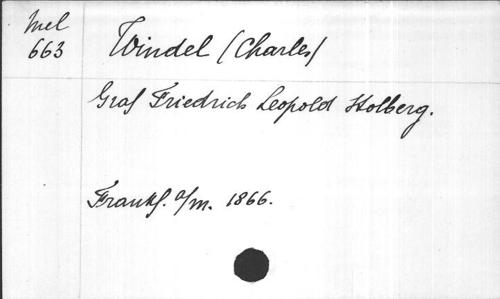 Mel
663
Windel (Charles)
Graf Friedrich Leopold Stolberg.
Frankf. a/m. 1866.